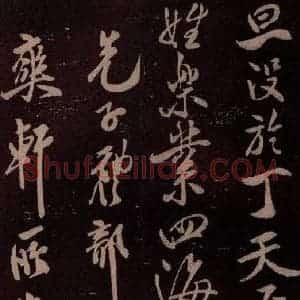 旦设於丁天
姓樂業四海
先子部
軒所
Shufaziliao.com